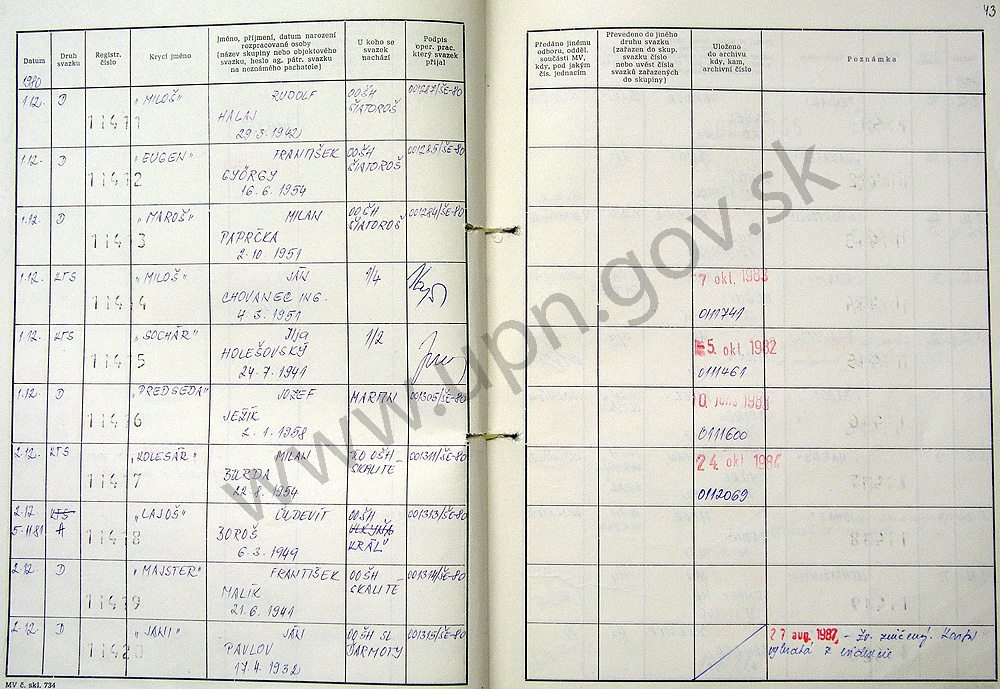 43
Datum
Druh svazku
Registr. číslo
Krycí jméno
Jméno, příjmení, datum narození
rozpracované osoby
(název skupiny nebo objektového
svazku, heslo ag. pátr. svazku
na neznámého pachatele)
U koho se svazek nachází
Podpis oper. prac. který svazek přijal
Předáno jinému
odboru, odděl.
součásti MV,
kdy, pod jakým
čís. jednacím
Převedeno do jiného
druhu svazku
(zařazen do skup.
svazku číslo
nebo uvést čísla
svazků zařazených
do skupiny)
Uloženo
do archivu
kdy, kam,
archivní číslo
Poznámka
1980
1.12. D 11411 "MILOŠ" RUDOLF OOŠH 001287/ŠE-80
HALAJ ŠIATOROŠ
29.3.1942
1.12. D 11412 "EUGEN" FRANTIŠEK OOŠH 001285/ŠE-80
GYÖRGY ŠIATOROŠ
16.6.1954
1.12. D 11413 "MAROŠ" MILAN OOŠH 001284/ŠE-80
PAPRČKA ŠIATOROŠ
2.10.1951
1.12. KTS 11414 "MILOŠ" JÁN 1/4
CHOVANEC ING. 7 okt. 1983
4.3.1951 0111741
1.12. KTS 11415 "SOCHÁR" Ilja 1/2
HOLEŠOVSKÝ 5. okt. 1982
24.7.1941 0111461
1.12. D 11416 "PREDSEDA" JOZEF MARTIN 001305/ŠE-80
JEŽÍK
2.1.1958 0111600
2.12. KTS 11417 "KOLESÁR" MILAN OŠH 001311/ŠE-80
BURDA SKALITÉ 24 okt.
22.8.1954 0112069
2.12 KTS 11418 "LAJOŠ" ĽUDEVÍT OOŠH 001313/ŠE-80
5-1181 A BOROŠ
6.3.1949 KRÁĽ
2.12. D 11419 "MAJSTER" FRANTIŠEK OOŠH 001314/ŠE-80
MALÍK SKALITÉ
21.6.1941
2.12. D 11420 "JANI" JÁN OOŠH SL. 001315/ŠE-80 27 aug. 1987 – Zv. zničený.
PAVLOV ĎARMOTY z evidencie
17.4.1932
MV č. skl. 734
www.upn.gov.sk